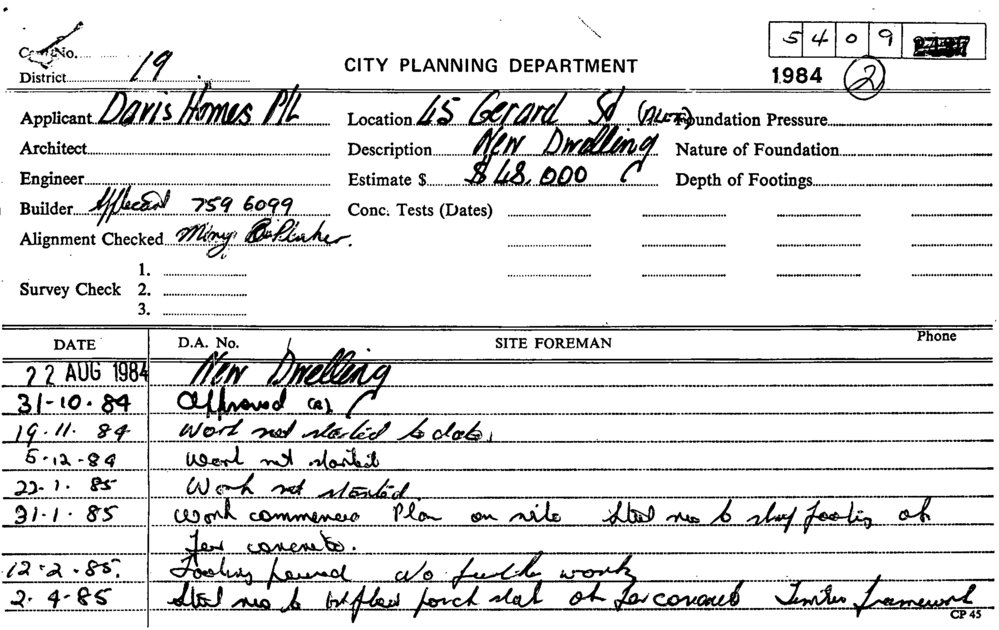 No.
District 19
CITY PLANNING DEPARTMENT
5409
1984 2
Applicant Davis Homes P/L
Location 45 Gerard St (ALEX)
Foundation Pressure
Architect
Description New Dwelling
Nature of Foundation
Engineer
Estimate $ $48,000
Depth of Footings
Builder Applicant 759 6099
Conc. Tests (Dates)
Alignment Checked
1.
Survey Check 2.
3.
DATE D.A. No. SITE FOREMAN Phone
22 AUG 1984 New Dwelling
31-10-84 Approved
19.11.84 Work not started to date.
5-12-84 Work not started
22-1.85 Work not started.
31-1.85 Work commenced Plan on site Steel to footing ok
for concrete.
12-2-85. Footing poured no further work
2-4-85 Steel to porch slab ok for concrete Timber framework
CP 45